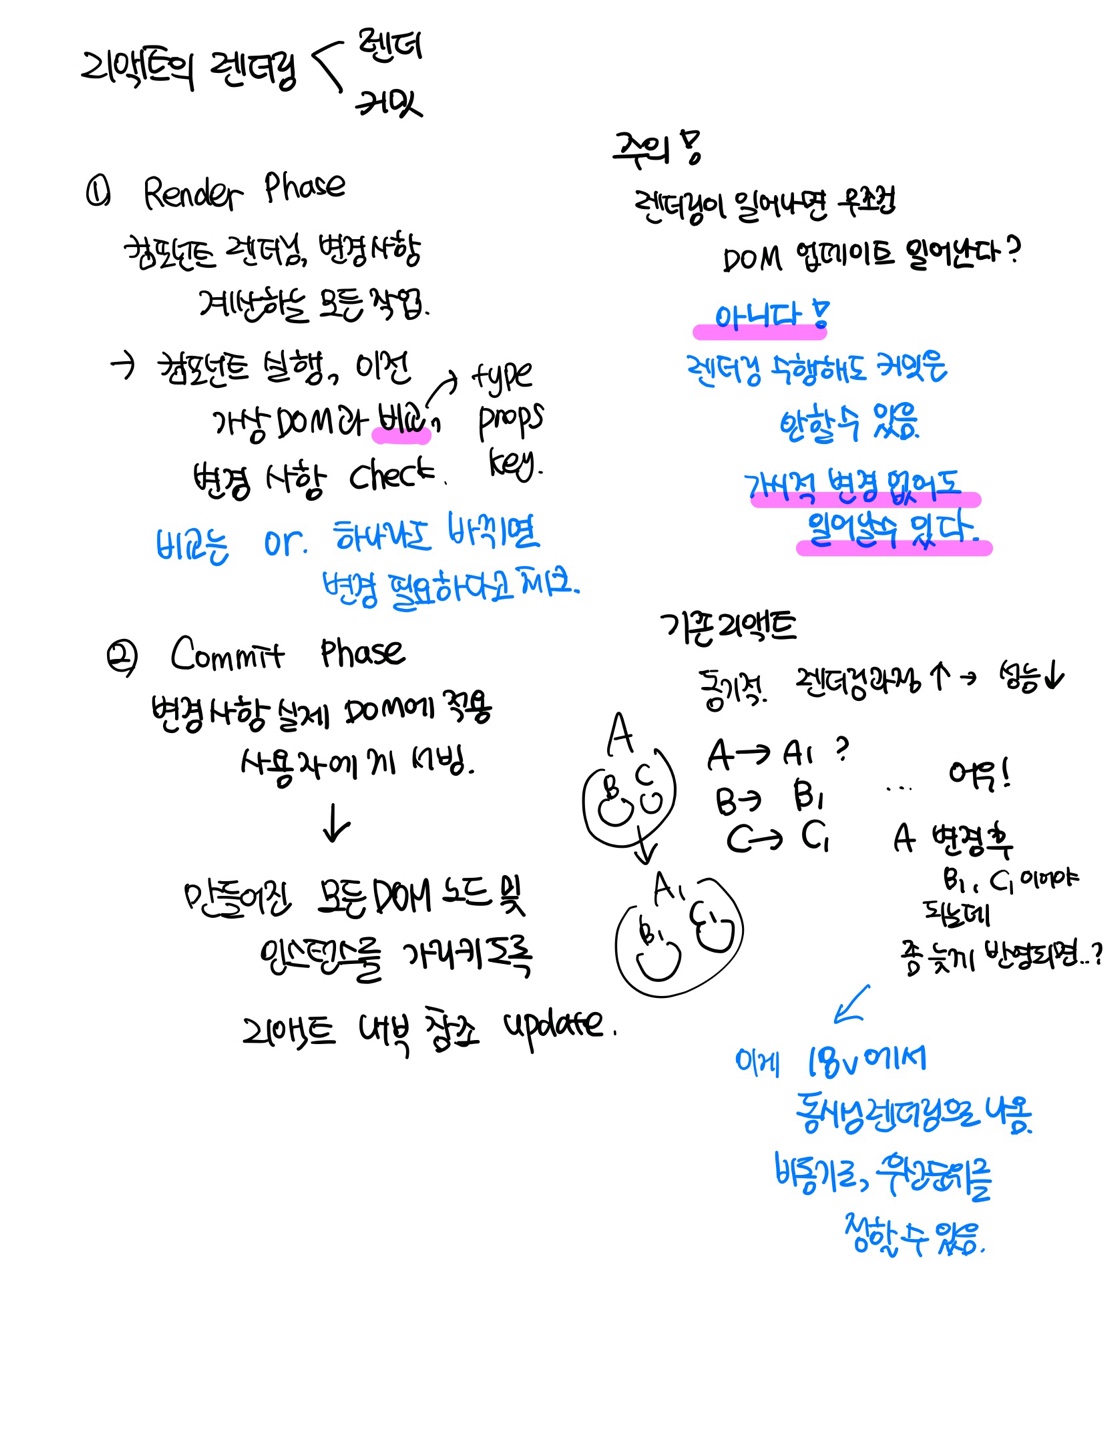 리액트의 렌더링 < 렌더
커밋
① Render Phase
컴포넌트 렌더링, 변경사항
계산하는 모든 작업.
→ 컴포넌트 실행, 이전
가상 DOM과 비교,
변경 사항 check.
→ type
props
key.
비교는 or. 하나라도 바뀌면
변경 필요하다고 체크.
② Commit Phase
변경사항 실제 DOM에 적용
사용자에게 서빙.
↓
만들어진 모든 DOM 노드 및
인스턴스를 가리키도록
리액트 내부 참조 update.
주의!
렌더링이 일어나면 무조건
DOM 업데이트 일어난다?
아니다!
렌더링 수행해도 커밋은
안할수 있음.
가시적 변경 없어도
일어날수 있다.
기존 리액트
동기적. 렌더링과정 ↑ → 성능↓
A
B C
↓
A1
B1 C1
A → A1 ?
B → B1
C → C1
... 어우!
A 변경후
B1, C1 이어야
되는데
좀 늦게 반영되면..?
이게 18v에서
동시성 렌더링으로 나옴.
비동기로, 우선순위를
정할 수 있음.